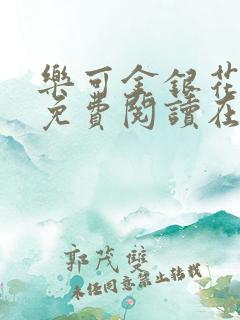 樂可金銀花
免費閱讀在
郭茂雙
未經同意禁止轉載